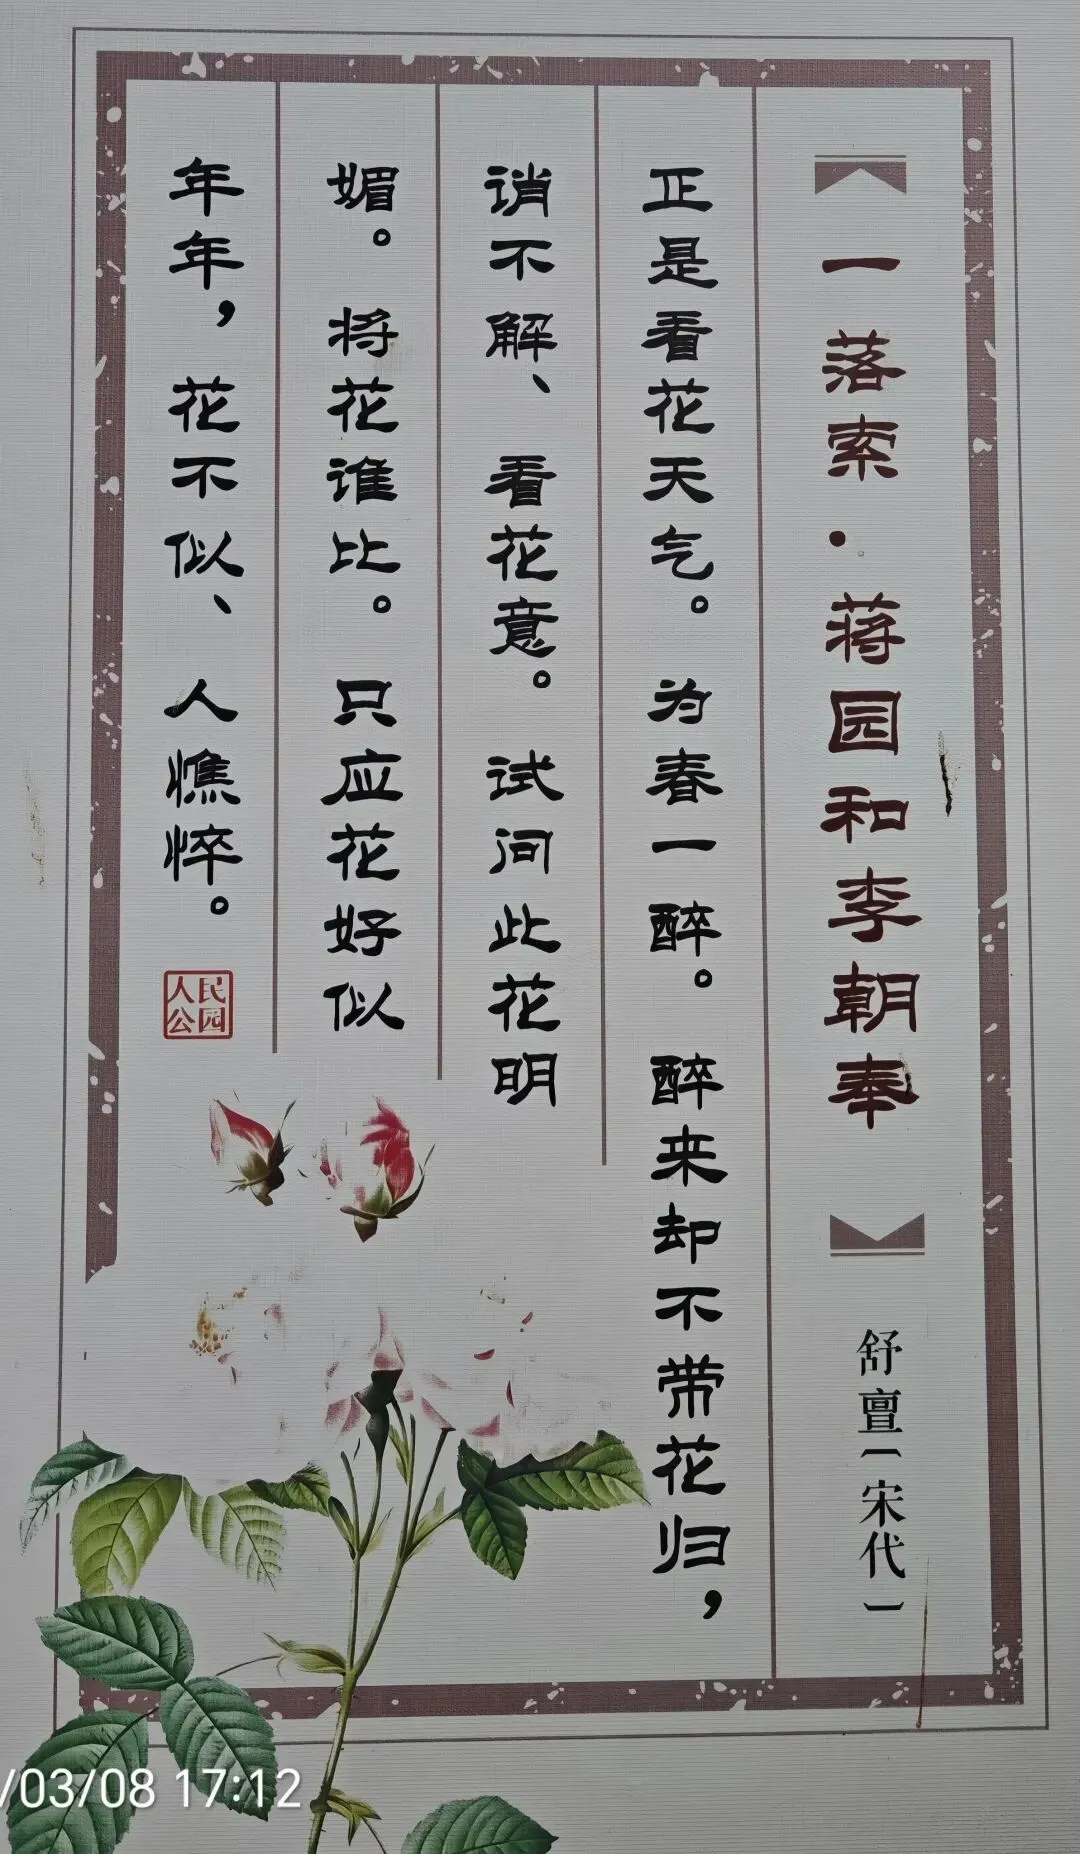 一落索·蒋园和李朝奉
舒亶〔宋代〕
正是看花天气。为春一醉。醉来却不带花归，
诮不解、看花意。试问此花明
媚。将花谁比。只应花好似
年年，花不似、人憔悴。
人民公园
/03/08 17:12